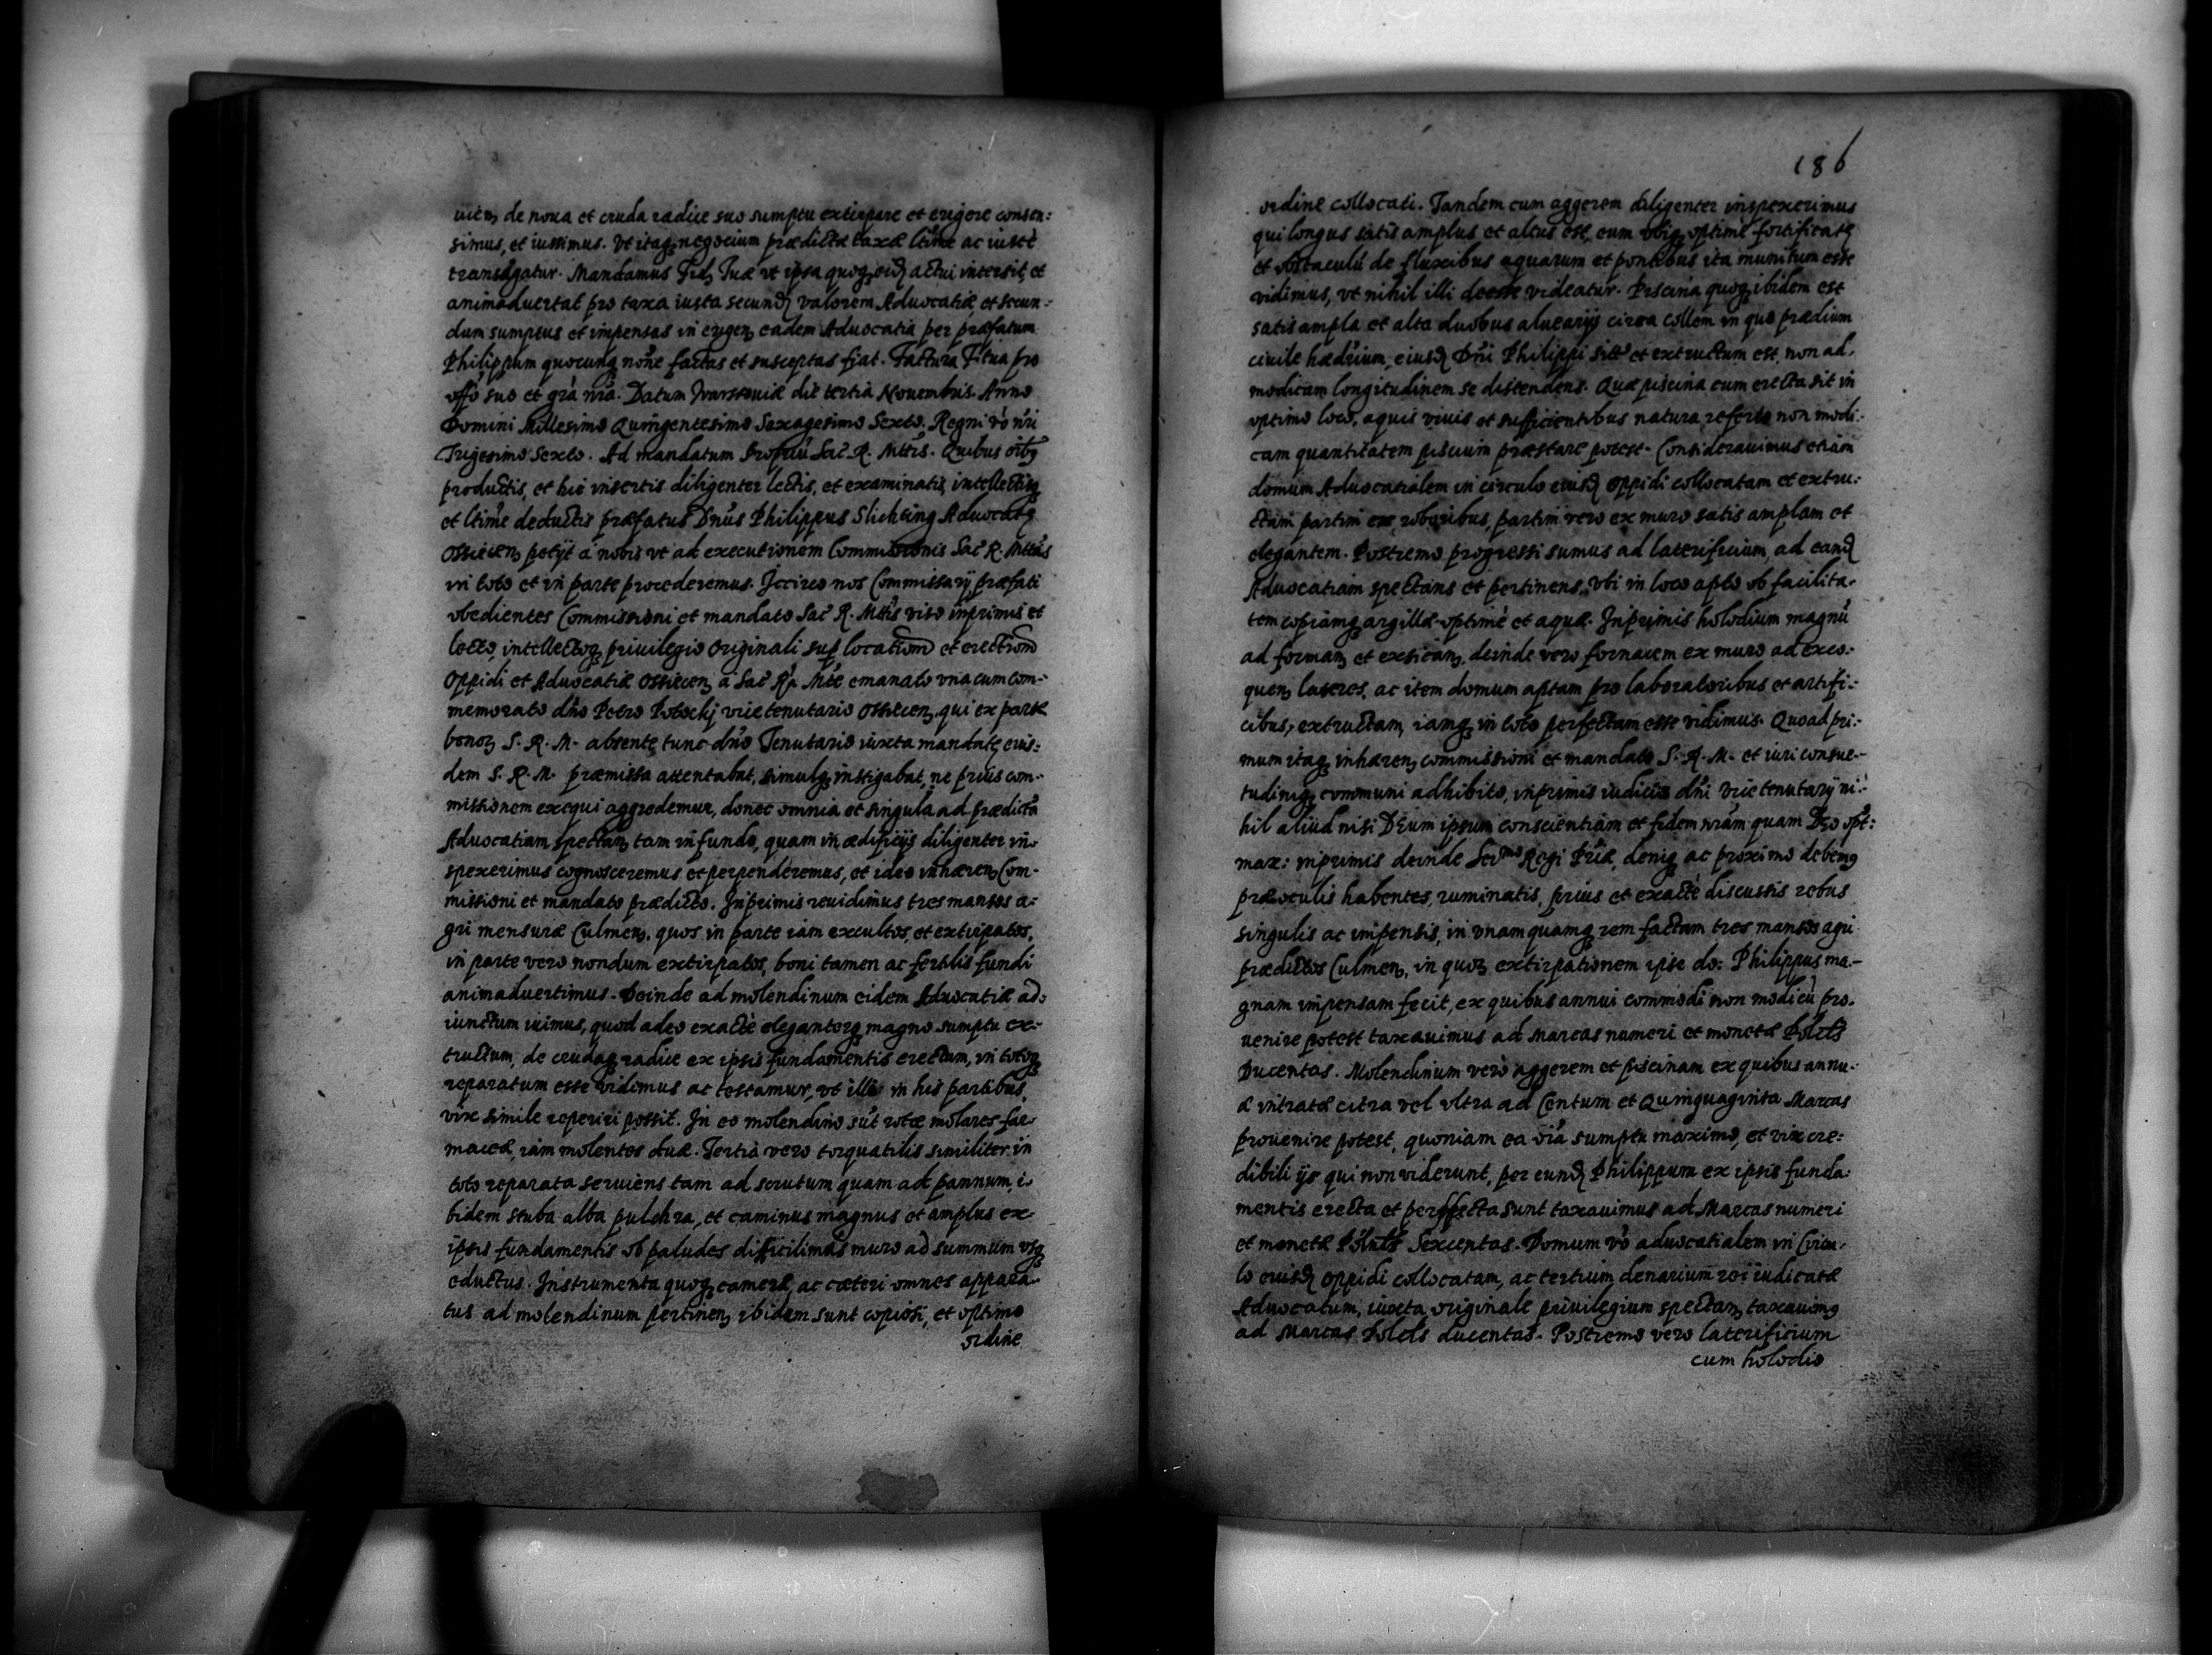 uien de noua et cruda radice suo sumptu extirpare et erigere consen:
simus, et iussimus. Vt itaq negocium prædictæ taxæ ltime ac iustè
transigatur. Mandamus Fid Tuæ vt ipsa quoq eid actui intersit, et
animaduertat pro taxa iusta secund valorem Aduocatiæ, et secun:
dum sumptus et inpensas in erigen eadem Aduocatia per præfatum
Philippum quocunq noñe factas et susceptas fiat. Factura F. tua pro
offo suo et gra nra. Datum Warssouiæ die tertia Nouembris. Anno
Domini Millesimo Quingentesimo Sexagesimo Sexto. Regni vo nri
Trigesimo Sexto. Ad mandatum Propriu Sac R. Mttis. Quibus oibq
productis, et hic insertis diligenter lectis, et examinatis, intellectisq
et ltime deductis præfatus Dnus Philippus Slichting Aduocatq
Ossiecen petijt a nobis vt ad executionem Commissionis Sac R. Mttis
in toto et in parte procederemus. Iccirco nos Commissarij præfati
obedientes Commissioni et mandato Sac R. Mttis viso inprimis et
lecto, intellectoq priuilegio Originali sup locatione et erectione
Oppidi et Aduocatiæ Ossiecen a Sac Ra Mte emanato vna cum com-
memorato dno Petro Potockj vicetenutario Ossiecen, qui ex parte
bonor S. R. M. absente tunc dno Tenutario iuxta mandatq eius:
dem S. R. M. præmissa attentabat, simulq instigabat, ne prius com-
missionem exequi aggredemur, donec omnia et singula ad prædicta
Aduocatiam spectan tam in fundo, quam in ædificijs diligenter in-
spexerimus cognosceremus et perpenderemus, et ideo inhæren Com-
missioni et mandato prædicto. Inprimis reuidimus tres mansos a-
gri mensuræ Culmen, quos in parte iam excultos, et extirpatos,
in parte vero nondum extirpatos, boni tamen ac fertilis fundi
animaduertimus. Deinde ad molendinum eidem Aduocatiæ ad-
iunctum iuimus, quod adeo exactè eleganterq magno sumptu ex-
tructum, de crudaq radice ex ipsis fundamentis erectum, in totoq
reparatum esse vidimus ac testamur, vt illi in his partibus,
vix simile reperiri possit. In eo molendino sut rotæ molares far-
maceæ, iam molentes duæ. Tertia vero torquatilis similiter in
toto reparata seruiens tam ad scrutum quam ad pannum, i-
bidem stuba alba pulchra, et caminus magnus et amplus ex
ipsis fundamentis ob paludes difficilimas muro ad summum vsq
eductus. Instrumenta quoq cameræ, ac cæteri omnes appara-
tus ad molendinum pertinen ibidem sunt copiosi, et optimo
ordine
186
ordine collocati. Tandem cum aggerem diligenter inspexerimus
qui longus satis amplus et altus est, eum vbiq optimè fortificatq
et obstaculu de fluxibus aquarum et pontibus ita munitum esse
vidimus, vt nihil illi deesse videatur. Piscina quoq ibidem est
satis ampla et alta duobus aluearijs circa collem in quo prædium
ciuile eiusd Dni Philippi et extructum est, non ad-
modicam longitudinem se distendens. Quæ piscina cum erecta sit in
optimo loco, aquis viuis et sufficientibus natura referta non modi-
cam quantitatem piscium præstare potest. Considerauimus etiam
domum Aduocatialem in circulo eiusd oppidi collocatam et extru-
ctam partim ex roboribus, partim vero ex muro satis amplam et
elegantem. Postremo progressi sumus ad laterificium, ad eand
Aduocatiam spectans et pertinens, vbi in loco apto ob facilita-
tem copiamq argillæ optimè et aquæ. Inprimis holodium magnu
ad forman et exsican, deinde vero fornacem ex muro ad exco-
quen lateres, ac item domum aptam pro laboratoribus et artifi-
cibus, extructam, iamq in toto perfectam esse vidimus. Quoad pri-
mum itaq inhæren commissioni et mandato S. R. M. et iuri consue-
tudiniq communi adhibito, inprimis iudicio dni vicetenutarij ni-
hil aliud nisi DEum ipsum conscientiam et fidem nram quam DEO opt:
max: inprimis deinde Sermo Regi Priæ, deniq ac proximo debemq
præoculis habentes, ruminatis, prius et exactè discussis rebus
singulis ac inpensis, in vnam quamq rem factam tres mansos agri
prædictos Culmen, in quor extirpationem ipse do: Philippus ma-
gnam inpensam fecit, ex quibus annui commodi non modicu pro-
uenire potest taxauimus ad Marcas numeri et monetæ Polcls
Ducentas. Molendinum verò aggerem et piscinam ex quibus annu-
æ intratæ citra vel vltra ad Centum et Quinguaginta Marcas
prouenire potest, quoniam ea oia sumptu maximo, et vix cre-
dibili ijs qui non viderunt, per eund Philippum ex ipsis funda-
mentis erecta et perffecta sunt taxauimus ad Marcas numeri
et monetæ Sexcentas. Domum vo aduocatialem in Circu-
lo eiusd oppidi collocatam, ac tertium denarium rei iudicatæ
Aduocatum, iuxta originale priuilegium spectan taxauimq
ad Marcas Polcls ducentas. Postremo vero laterificium
cum holodio